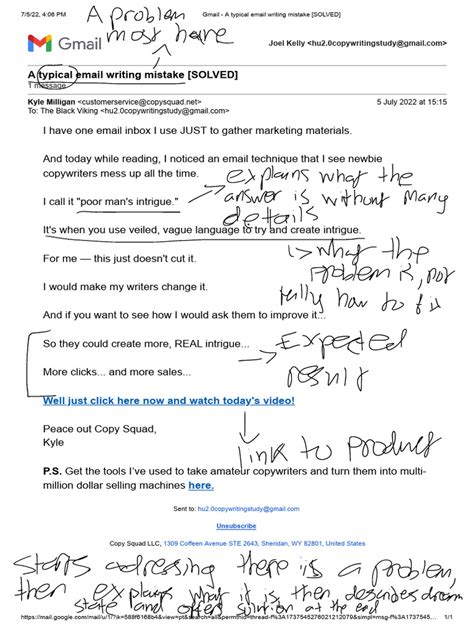 7/5/22, 4:08 PM Gmail - A typical email writing mistake [SOLVED]
A problem
most have
Gmail
Joel Kelly <hu2.0copywritingstudy@gmail.com>
A typical email writing mistake [SOLVED]
1 message
Kyle Milligan <customerservice@copysquad.net> 5 July 2022 at 15:15
To: The Black Viking <hu2.0copywritingstudy@gmail.com>
I have one email inbox I use JUST to gather marketing materials.
And today while reading, I noticed an email technique that I see newbie
copywriters mess up all the time.
explains what the
answer is without many
details
I call it "poor man's intrigue."
It's when you use veiled, vague language to try and create intrigue.
what the
problem is, not
really how to fix
For me — this just doesn't cut it.
I would make my writers change it.
And if you want to see how I would ask them to improve it...
So they could create more, REAL intrigue...
Expected
result
More clicks... and more sales...
Well just click here now and watch today's video!
link to product
Peace out Copy Squad,
Kyle
P.S. Get the tools I've used to take amateur copywriters and turn them into multi-
million dollar selling machines here.
Sent to: hu2.0copywritingstudy@gmail.com
Unsubscribe
Copy Squad LLC, 1309 Coffeen Avenue STE 2643, Sheridan, WY 82801, United States
Starts adressing there is a problem,
then explains what it is then, describes dream
state and offers solution at the end
1/1